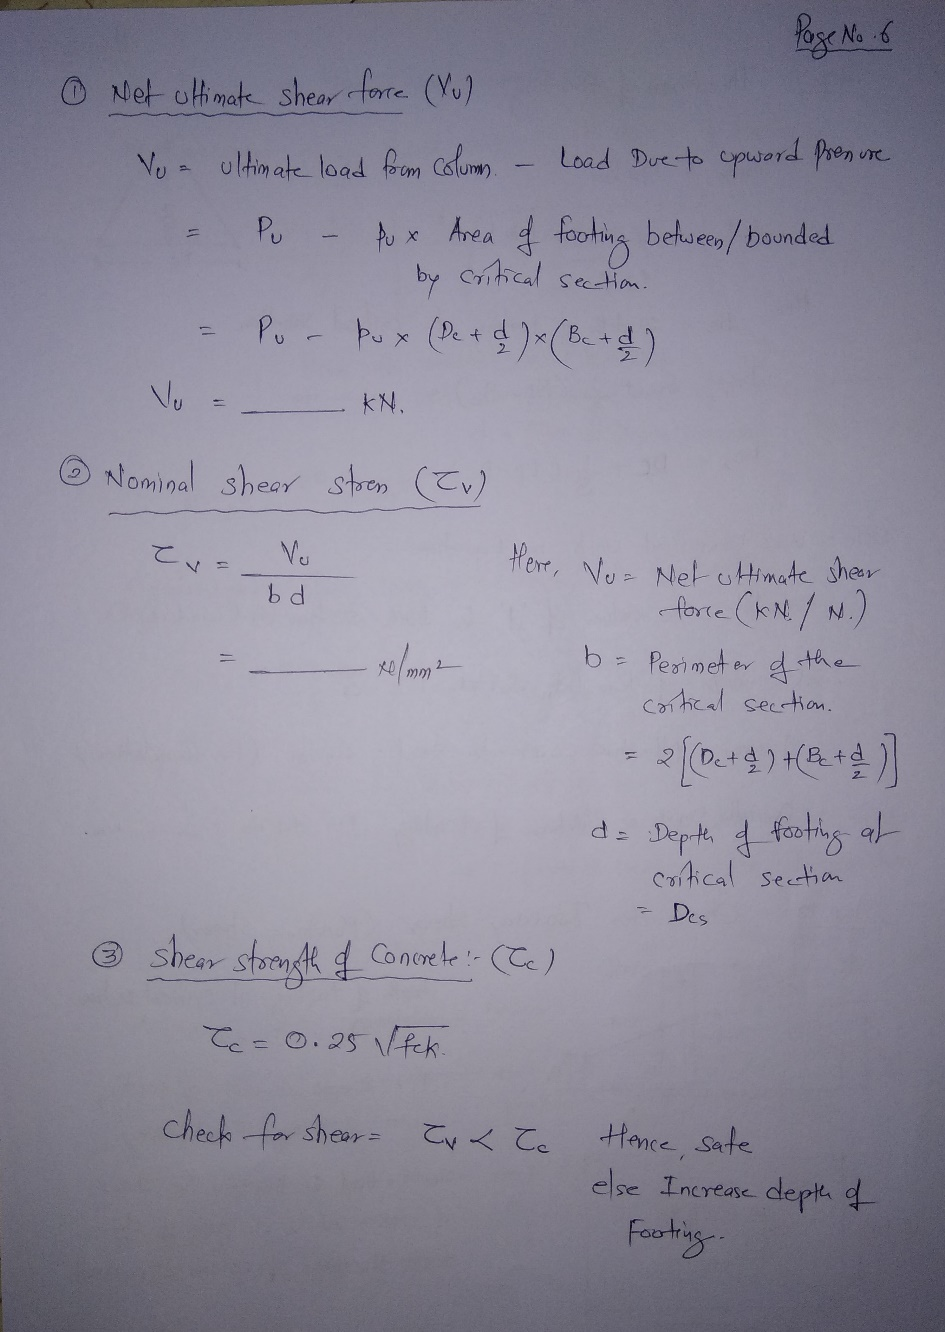 Page No. 6
① Net ultimate shear force (Vu)
Vu = ultimate load from column. – Load Due to upward Pressure
= Pu – pu x Area of footing between/bounded
by critical section.
= Pu – pu x (Dc + d/2) x (Bc + d/2)
Vu = ______ kN.
② Nominal shear stress (τv)
τv = Vu / bd
= ______ /mm²
Here, Vu = Net ultimate shear
force (kN / N.)
b = Perimeter of the
critical section.
= 2 [(Dc + d/2) + (Bc + d/2)]
d = Depth of footing at
critical section
= Dcs
③ shear strength of Concrete :- (τc)
τc = 0.25 √fck.
check for shear = τv < τc Hence, safe
else Increase depth of
Footing.